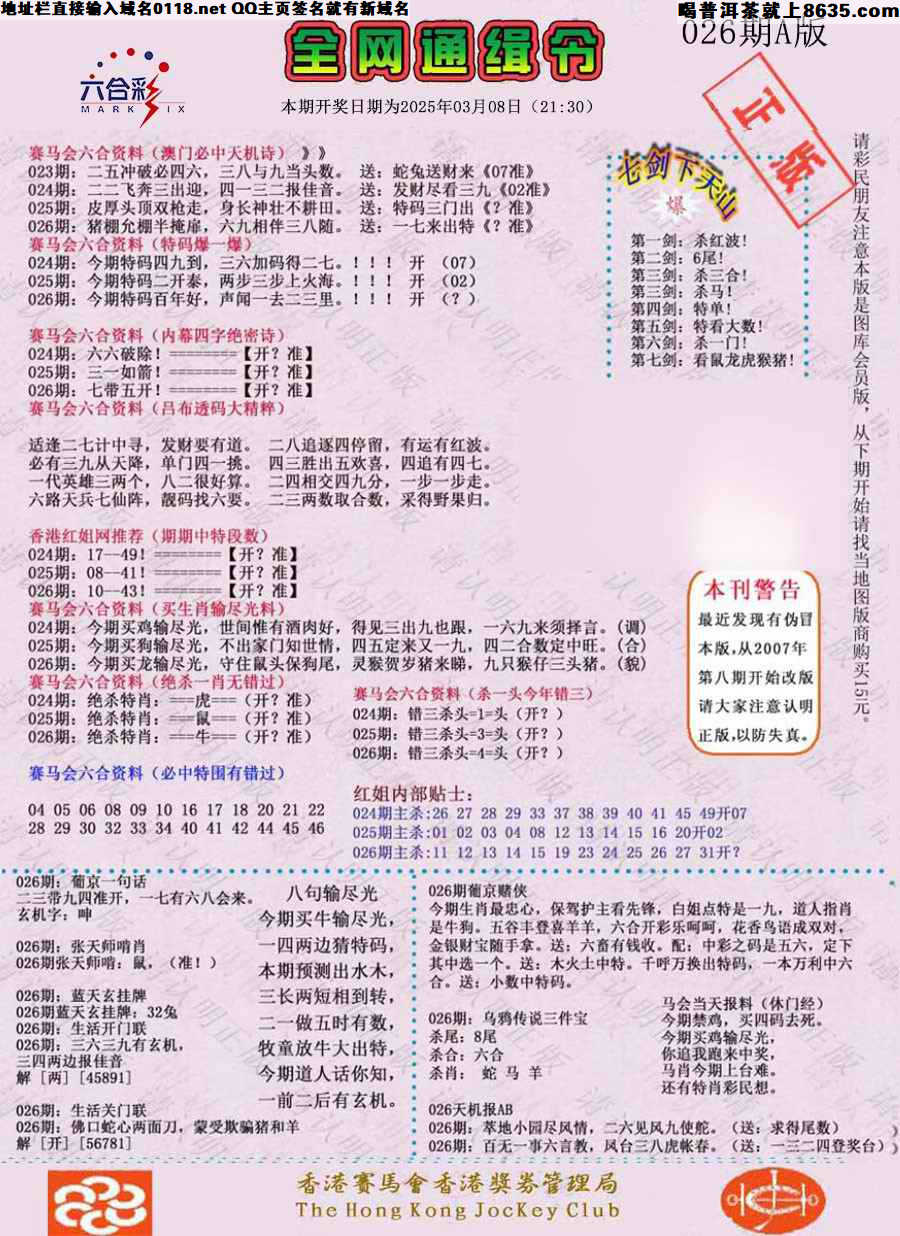 地址栏直接输入域名0118.net QQ主页签名就有新域名
喝普洱茶就上8635.com
026期A版
全网通缉令
六合彩
MARK SIX
本期开奖日期为2025年03月08日（21:30）
正版
赛马会六合资料（澳门必中天机诗）》》
023期：二五冲破必四六，三八与九当头数。 送：蛇兔送财来《07准》
024期：二二飞奔三出迎，四一三二报佳音。 送：发财尽看三九《02准》
025期：皮厚头顶双枪走，身长神壮不耕田。 送：特码三门出《？准》
026期：猪棚允棚半掩扉，六九相伴三八随。 送：一七来出特《？准》
赛马会六合资料（特码爆一爆）
024期：今期特码四九到，三六加码得二七。！！！ 开 （07）
025期：今期特码二开泰，两步三步上火海。！！！ 开 （02）
026期：今期特码百年好，声闻一去二三里。！！！ 开 （？）
七剑下天山
爆
第一剑：杀红波！
第二剑：6尾！
第三剑：杀三合！
第三剑：杀马！
第四剑：特单！
第五剑：特看大数！
第六剑：杀一门！
第七剑：看鼠龙虎猴猪！
请彩民朋友注意本版是图库会员版，从下期开始请找当地图版商购买15元。
赛马会六合资料（内幕四字绝密诗）
024期：六六破除！========【开？准】
025期：三一如箭！========【开？准】
026期：七带五开！========【开？准】
赛马会六合资料（吕布透码大精粹）
适逢二七计中寻，发财要有道。 二八追逐四停留，有运有红波。
必有三九从天降，单门四一挑。 四三胜出五欢喜，四追有四七。
一代英雄三两个，八二很好算。 二四相交四九分，一步一步走。
六路天兵七仙阵，靓码找六要。 二三两数取合数，采得野果归。
香港红姐网推荐（期期中特段数）
024期：17--49！========【开？准】
025期：08--41！========【开？准】
026期：10--43！========【开？准】
赛马会六合资料（买生肖输尽光料）
024期：今期买鸡输尽光，世间惟有酒肉好，得见三出九也跟，一六九来须择言。(调)
025期：今期买狗输尽光，不出家门知世情，四五定来又一九，四二合数定中旺。(合)
026期：今期买龙输尽光，守住鼠头保狗尾，灵猴贺岁猪来睇，九只猴仔三头猪。(貌)
赛马会六合资料（绝杀一肖无错过）
024期：绝杀特肖：===虎===（开？准）
025期：绝杀特肖：===鼠===（开？准）
026期：绝杀特肖：===牛===（开？准）
赛马会六合资料（杀一头今年错三）
024期：错三杀头=1=头（开？）
025期：错三杀头=3=头（开？）
026期：错三杀头=4=头（开？）
本刊警告
最近发现有伪冒
本版,从2007年
第八期开始改版
请大家注意认明
正版,以防失真。
赛马会六合资料（必中特围有错过）
04 05 06 08 09 10 16 17 18 20 21 22
28 29 30 32 33 34 40 41 42 44 45 46
红姐内部贴士：
024期主杀:26 27 28 29 33 37 38 39 40 41 45 49开07
025期主杀:01 02 03 04 08 12 13 14 15 16 20开02
026期主杀:11 12 13 14 15 19 23 24 25 26 27 31开？
026期：葡京一句话
二三带九四准开，一七有六八会来。
玄机字：呻
026期：张天师啃肖
026期张天师啃：鼠，（准！）
026期：蓝天玄挂牌
026期蓝天玄挂牌：32兔
026期：生活开门联
026期：三六三九有玄机，
三四两边报佳音
解［两］[45891]
026期：生活关门联
026期：佛口蛇心两面刀，蒙受欺骗猪和羊
解［开］[56781]
八句输尽光
今期买牛输尽光，
一四两边猜特码，
本期预测出水木，
三长两短相到转，
二一做五时有数，
牧童放牛大出特，
今期道人话你知，
一前二后有玄机。
026期葡京赌侠
今期生肖最忠心，保驾护主看先锋，白姐点特是一九，道人指肖
是牛狗。五谷丰登喜羊羊，六合开彩乐呵呵，花香鸟语成双对，
金银财宝随手拿。送：六畜有钱收。配：中彩之码是五六，定下
其中选一个。送：木火土中特。千呼万换出特码，一本万利中六
合。送：小数中特码。
026期：乌鸦传说三件宝
杀尾：8尾
杀合：六合
杀肖： 蛇 马 羊
马会当天报料（休门经）
今期禁鸡，买四码去死。
今期买鸡输尽光，
你追我跑来中奖，
马肖今期上台难。
还有特肖彩民想。
026天机报AB
026期：萃地小园尽风情，二六见风九使舵。（送：求得尾数）
026期：百无一事六言教，凤台三八虎帐春。（送：一三二四登奖台）
香港賽馬會香港獎券管理局
The Hong Kong JocKey Club